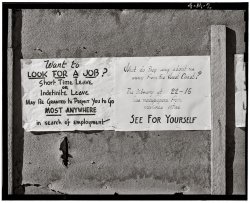 Want to
LOOK FOR A JOB?
Short Time Leave
or
Indefinite Leave
May Be Granted to Permit You to Go
MOST ANYWHERE
in search of employment
What do they say about us
away from the West Coast?
The Library at 22-15
has newspapers from
SEE FOR YOURSELF